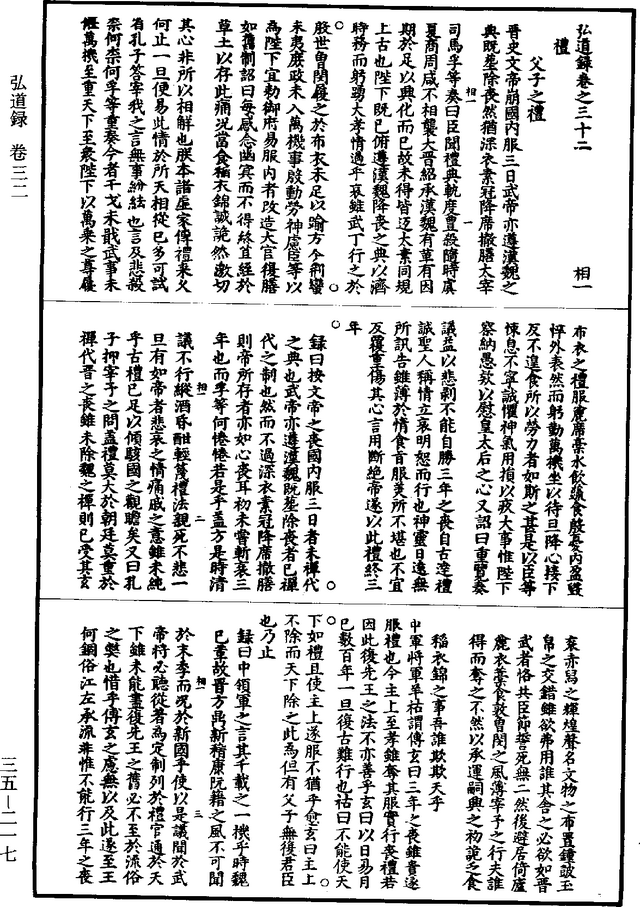 弘道録卷之三十二 相一
禮
父子之禮
晉史文帝崩國内服三日武帝亦遵漢魏之
典既塟除喪然猶深衣素冠降席撤膳太宰
司馬孚等奏曰臣聞禮典軌度豐殺隨時虞
夏商周咸不相襲大晉紹承漢魏有革有因
期於足以興化而已故未得皆返太素同規
上古也陛下既已俯遵漢魏降喪之典以濟
時務而躬蹈大孝情過乎哀雖武丁行之於
殷世曾閔履之於布衣未足以踰方今荆蠻
未夷庶政未入萬機事殷動勞神慮臣等以
為陛下宜勅御府易服内者改造大官復膳
如舊制詔曰每感念幽冥而不得終苴絰於
草土以存此痛况當食稻衣錦誠詭然激切
其心非所以相解也朕本諸生家傳禮來久
何止一旦便易此情於所天相從已多可試
省孔子答宰我之言無事紛紜也言及悲殺
柰何柰何孚等重奏今者干戈未戢武事未
偃萬機至重天下至衆陛下以萬乘之尊履
相一 一
布衣之禮服麄席藁水飲蔬食殷憂内盈毀
悴外表然而躬勤萬機坐以待旦降心接下
反不遑食所以勞力者如斯之甚是以臣等
悚息不寧誠懼神氣用損以疚大事惟陛下
察納愚欵以慰皇太后之心又詔曰重覽奏
議益以悲剥不能自勝三年之喪自古達禮
誠聖人稱情立哀明恕而行也神靈日遠無
所訊告雖薄於情食旨服美所不堪也不宜
反覆重傷其心言用斷絶帝遂以此禮終三
年
録曰按文帝之喪國内服三日者未禪代
之典也武帝亦遵漢魏既塟除喪者已禪
代之制也然而不過深衣素冠降席撤膳
則帝所存者亦如心喪耳初未嘗斬衰三
年也而孚等何惓惓若是乎盖方是時清
議不行縱酒昏酣輕蔑禮法親死不悲一
旦有如帝者悲哀之情痛戚之意雖未純
乎古禮已足以傾駭國之觀瞻矣又曰孔
子抑宰予之問盖禮莫大於朝廷莫重於
禪代晉之喪雖未除魏之禪則已受其玄
相一 二
衮赤舄之輝煌聲名文物之布置鐘皷玉
帛之交錯雖欲弗用誰其舍之必欲如晉
武者恪共臣節誓死無二然後避居倚廬
麄衣藁食敦曽閔之風薄宰予之行夫誰
得而奪之不然以承運嗣興之初詭之食
稻衣錦之事吾誰欺欺天乎
中軍將軍羊祜謂傅玄曰三年之喪雖貴遂
服禮也今主上至孝雖奪其服實行喪禮若
因此復先王之法不亦善乎玄曰以日易月
已數百年一旦復古難行也祜曰不能使天
下如禮且使主上遂服不猶乎愈玄曰主上
不除而天下除之此為但有父子無復君臣
也乃止
録曰中領軍之言其千載之一機乎時魏
已熏故晉方鬯新稽康阮籍之風不可聞
於末季而况於新國乎使以是議聞於武
帝將必聽從著為定制列於禮官通於天
下雖未能盡復先王之舊必不至於流俗
之獘也惜乎傅玄之慮無以及此遂至王
何飼俗江左承流非惟不能行三年之喪
相一 三
弘道録 卷三二
三五—二一七